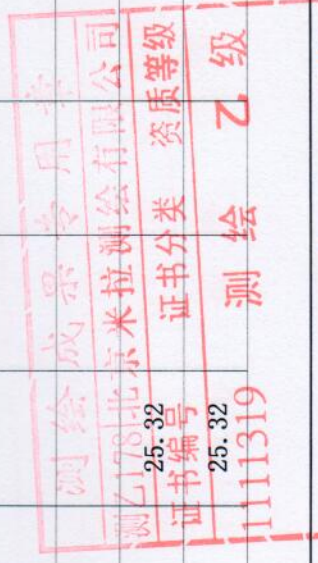 测绘成果专用章
测乙178 北京米拉测绘有限公司
证书编号 证书分类 资质等级
25.32
1111319 测绘 乙级
25.32